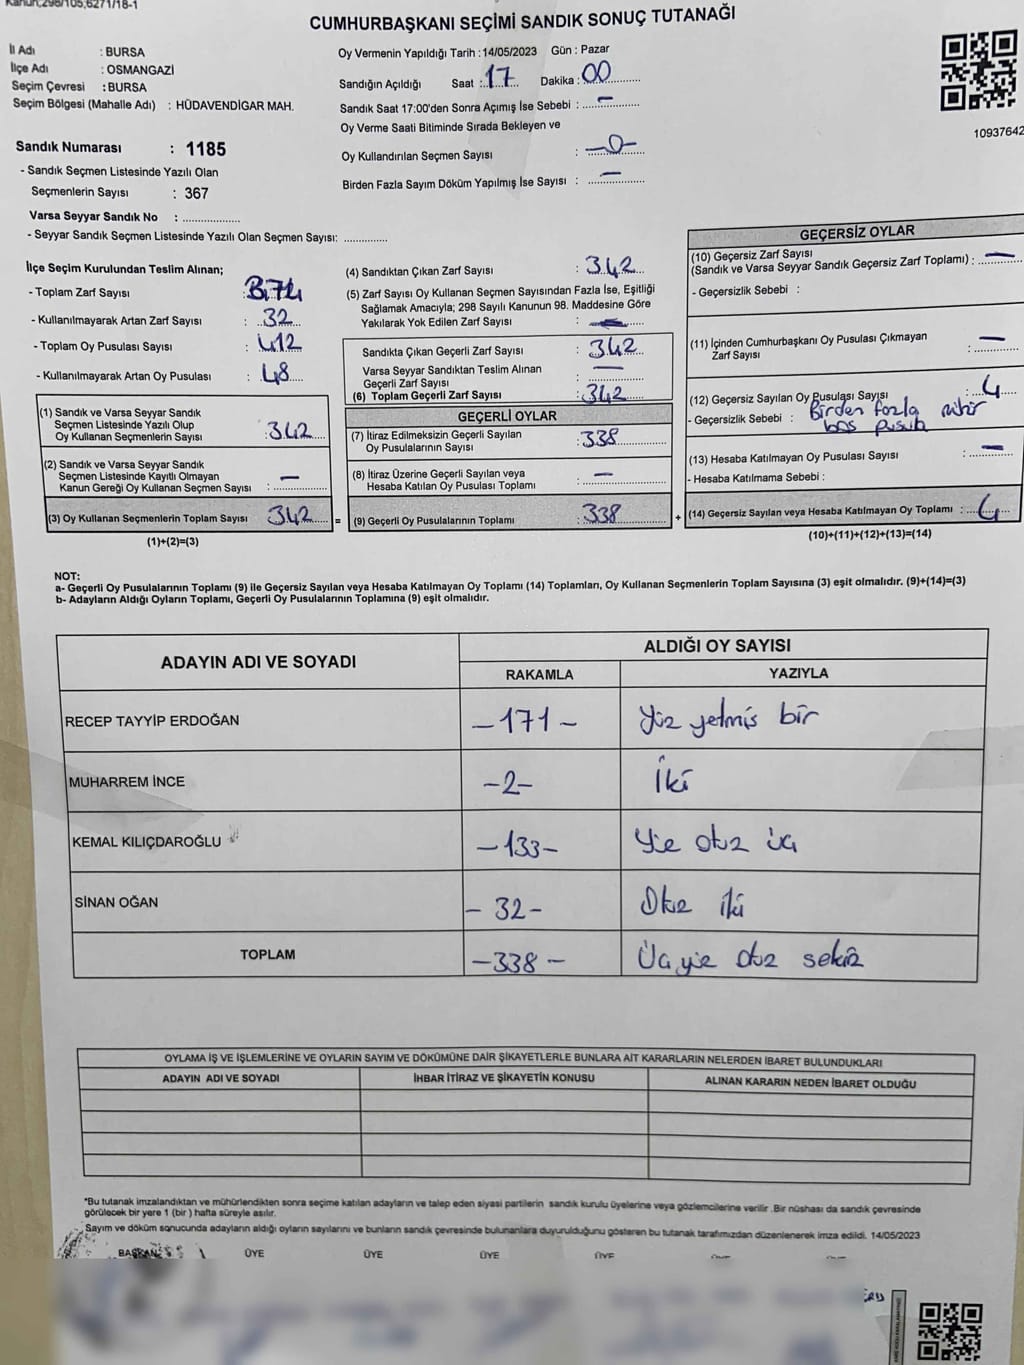 Kanun;298/105,6271/18-1
CUMHURBAŞKANI SEÇİMİ SANDIK SONUÇ TUTANAĞI
İl Adı : BURSA
İlçe Adı : OSMANGAZİ
Seçim Çevresi : BURSA
Seçim Bölgesi (Mahalle Adı) : HÜDAVENDİGAR MAH.
Sandık Numarası : 1185
- Sandık Seçmen Listesinde Yazılı Olan
Seçmenlerin Sayısı : 367
Varsa Seyyar Sandık No : ..................
- Seyyar Sandık Seçmen Listesinde Yazılı Olan Seçmen Sayısı: .............
Oy Vermenin Yapıldığı Tarih : 14/05/2023 Gün : Pazar
Sandığın Açıldığı Saat : 17 Dakika : 00
Sandık Saat 17:00'den Sonra Açımış İse Sebebi : –
Oy Verme Saati Bitiminde Sırada Bekleyen ve
Oy Kullandırılan Seçmen Sayısı : –0–
Birden Fazla Sayım Döküm Yapılmış İse Sayısı : –
10937642
İlçe Seçim Kurulundan Teslim Alınan;
- Toplam Zarf Sayısı :
- Kullanılmayarak Artan Zarf Sayısı : 32
- Toplam Oy Pusulası Sayısı : 412
- Kullanılmayarak Artan Oy Pusulası : 48
(1) Sandık ve Varsa Seyyar Sandık
Seçmen Listesinde Yazılı Olup
Oy Kullanan Seçmenlerin Sayısı : 342
(2) Sandık ve Varsa Seyyar Sandık
Seçmen Listesinde Kayıtlı Olmayan
Kanun Gereği Oy Kullanan Seçmen Sayısı : –
(3) Oy Kullanan Seçmenlerin Toplam Sayısı 342 =
(1)+(2)=(3)
(4) Sandıktan Çıkan Zarf Sayısı : 342
(5) Zarf Sayısı Oy Kullanan Seçmen Sayısından Fazla İse, Eşitliği
Sağlamak Amacıyla; 298 Sayılı Kanunun 98. Maddesine Göre
Yakılarak Yok Edilen Zarf Sayısı : –
Sandıkta Çıkan Geçerli Zarf Sayısı : 342
Varsa Seyyar Sandıktan Teslim Alınan
Geçerli Zarf Sayısı : –
(6) Toplam Geçerli Zarf Sayısı : 342
GEÇERLİ OYLAR
(7) İtiraz Edilmeksizin Geçerli Sayılan
Oy Pusulalarının Sayısı : 338
(8) İtiraz Üzerine Geçerli Sayılan veya
Hesaba Katılan Oy Pusulası Toplamı : –
(9) Geçerli Oy Pusulalarının Toplamı : 338 +
GEÇERSİZ OYLAR
(10) Geçersiz Zarf Sayısı
(Sandık ve Varsa Seyyar Sandık Geçersiz Zarf Toplamı) : –
- Geçersizlik Sebebi :
(11) İçinden Cumhurbaşkanı Oy Pusulası Çıkmayan
Zarf Sayısı : –
(12) Geçersiz Sayılan Oy Pusulası Sayısı : 4
- Geçersizlik Sebebi : Birden fazla mühür
boş pusula
(13) Hesaba Katılmayan Oy Pusulası Sayısı : –
- Hesaba Katılmama Sebebi :
(14) Geçersiz Sayılan veya Hesaba Katılmayan Oy Toplamı : 4
(10)+(11)+(12)+(13)=(14)
NOT:
a- Geçerli Oy Pusulalarının Toplamı (9) ile Geçersiz Sayılan veya Hesaba Katılmayan Oy Toplamı (14) Toplamları, Oy Kullanan Seçmenlerin Toplam Sayısına (3) eşit olmalıdır. (9)+(14)=(3)
b- Adayların Aldığı Oyların Toplamı, Geçerli Oy Pusulalarının Toplamına (9) eşit olmalıdır.
ADAYIN ADI VE SOYADI
ALDIĞI OY SAYISI
RAKAMLA YAZIYLA
RECEP TAYYİP ERDOĞAN –171– Yüz yetmiş bir
MUHARREM İNCE –2– İki
KEMAL KILIÇDAROĞLU –133– Yüz otuz üç
SİNAN OĞAN –32– Otuz iki
TOPLAM –338– Üçyüz otuz sekiz
OYLAMA İŞ VE İŞLEMLERİNE VE OYLARIN SAYIM VE DÖKÜMÜNE DAİR ŞİKAYETLERLE BUNLARA AİT KARARLARIN NELERDEN İBARET BULUNDUKLARI
ADAYIN ADI VE SOYADI İHBAR İTİRAZ VE ŞİKAYETİN KONUSU ALINAN KARARIN NEDEN İBARET OLDUĞU
*Bu tutanak imzalandıktan ve mühürlendikten sonra seçime katılan adayların ve talep eden siyasi partilerin sandık kurulu üyelerine veya gözlemcilerine verilir .Bir nüshası da sandık çevresinde
görülecek bir yere 1 (bir ) hafta süreyle asılır.
Sayım ve döküm sonucunda adayların aldığı oyların sayılarını ve bunların sandık çevresinde bulunanlara duyurulduğunu gösteren bu tutanak tarafımızdan düzenlenerek imza edildi. 14/05/2023
BAŞKAN ÜYE ÜYE ÜYE ÜYE